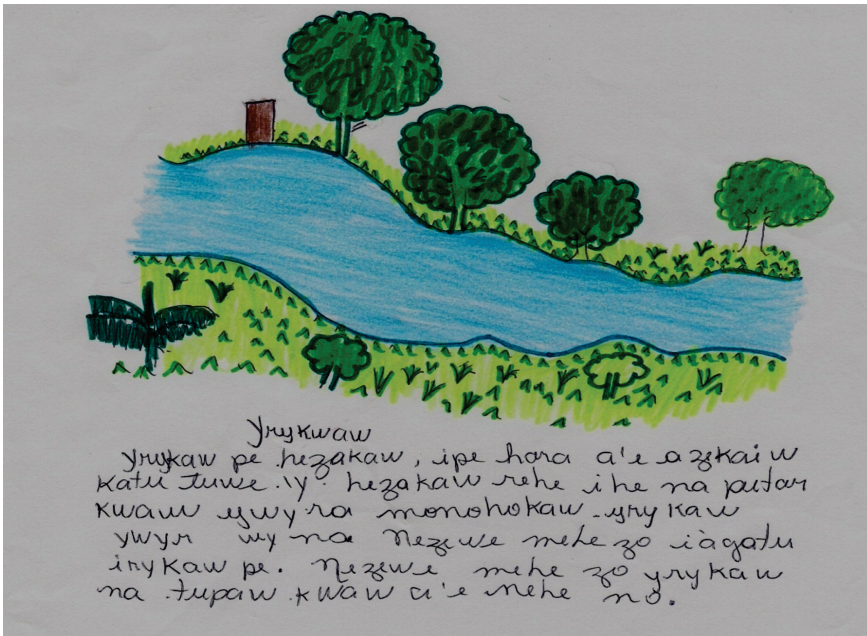 Yrykwaw
Yrykaw pe hezakaw, ipe hara a'e azekaiw
katu tuwe iy. hezakaw rehe ihe na putar
kwaw ywyra monohokaw yrykaw
ywyr wy na Nezewe mehe zo iàgatu
irykaw pe. Nezewe mehe zo yrykaw
na tupaw kwaw a'e nehe no.